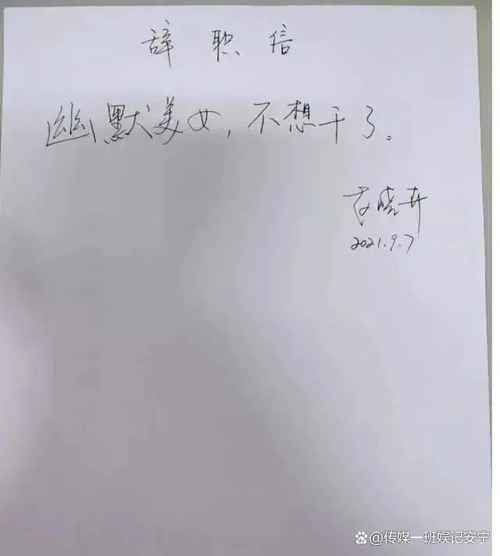 辞职信
幽默美女，不想干了。
李晓卉
2021.9.7
@传媒一班娱记安宁